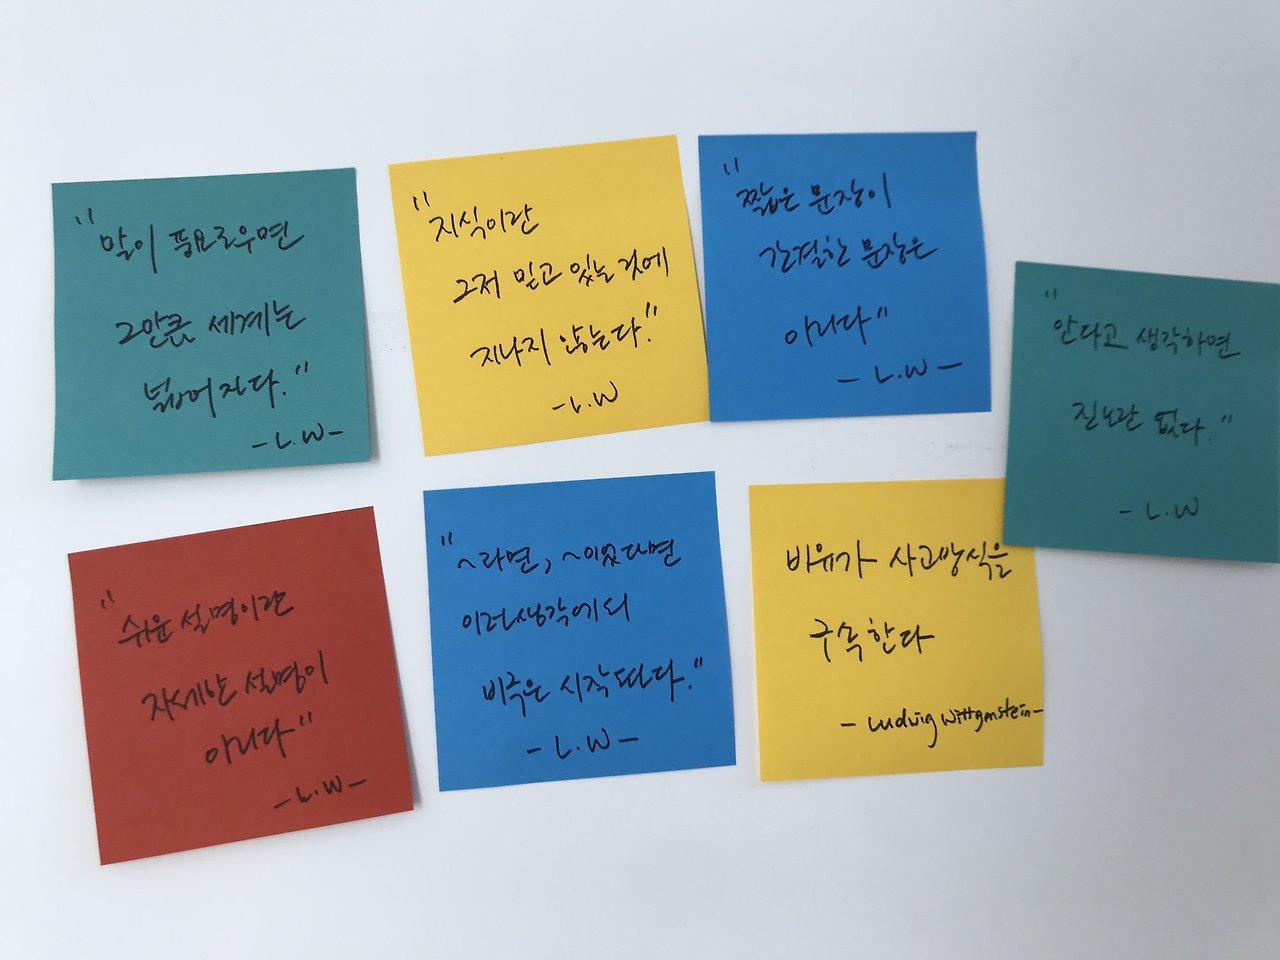 "말이 풍요로우면
그만큼 세계는
넓어진다."
-L.W-
"지식이란
그저 믿고 있는 것에
지나지 않는다."
-L.W
"짧은 문장이
간결한 문장은
아니다"
- L.W -
"안다고 생각하면
진보란 없다."
- L.W
"쉬운 설명이란
자세한 설명이
아니다"
-L.W-
"~라면, ~이었다면
이런생각에서
비극은 시작된다."
- L.W -
비유가 사고방식을
구속한다
- Ludwig Wittgenstein-